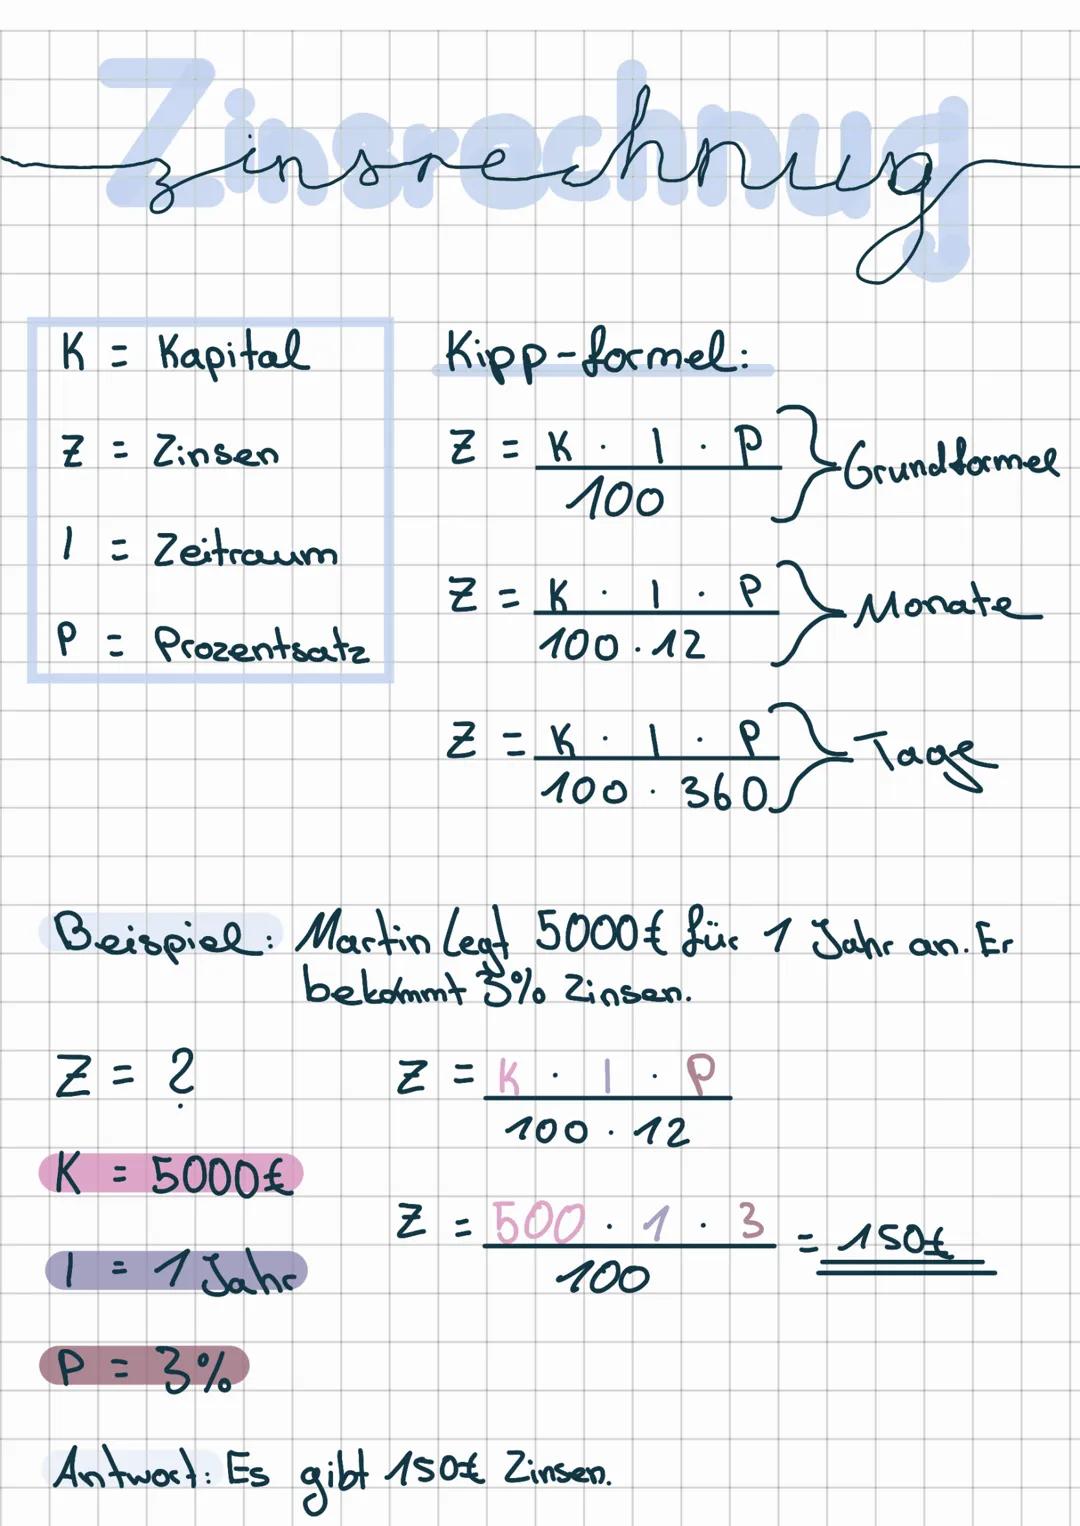 Zinsrechnug
K = Kapital
Z = Zinsen
I = Zeitraum
P = Prozentsatz
Kipp-formel:
Z = K · I · P
100
Grundformel
Z = K · I · P
100 · 12
Monate
Z = K · I · P
100 · 360
Tage
Beispiel: Martin legt 5000€ für 1 Jahr an. Er
bekommt 3% Zinsen.
Z = ?
K = 5000€
I = 1 Jahr
P = 3%
Z = K · I · P
100 · 12
Z = 500 · 1 · 3 = 150€
100
Antwort: Es gibt 150€ Zinsen.